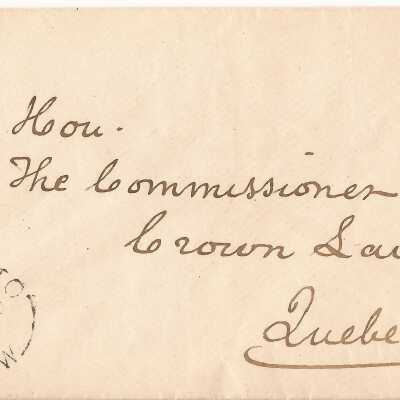 Hon.
The Commissioner
Crown La
Quebe